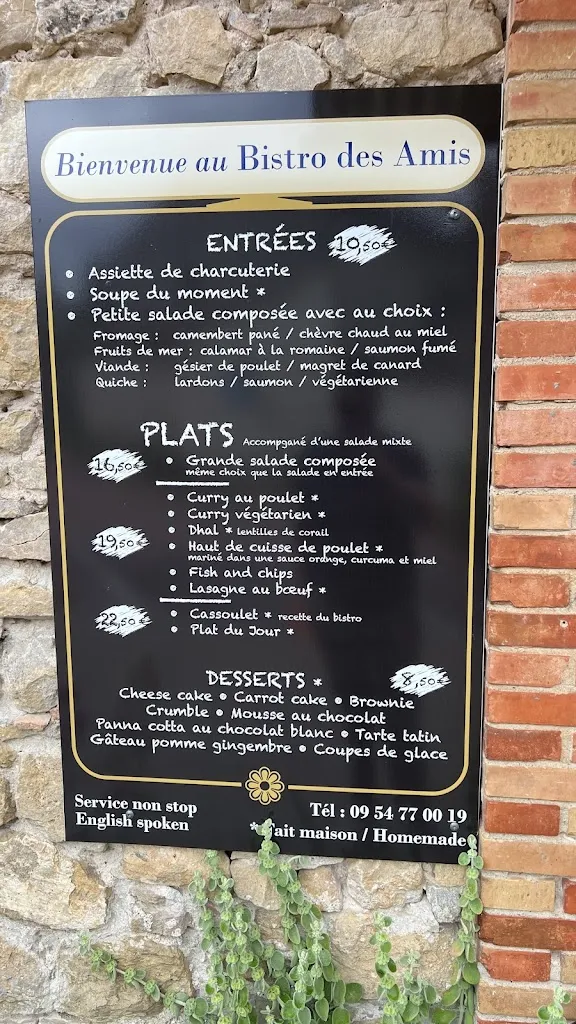 Bienvenue au Bistro des Amis
ENTRÉES 10,50€
• Assiette de charcuterie
• Soupe du moment *
• Petite salade composée avec au choix :
Fromage : camembert pané / chèvre chaud au miel
Fruits de mer : calamar à la romaine / saumon fumé
Viande : gésier de poulet / magret de canard
Quiche : lardons / saumon / végétarienne
PLATS Accompgané d'une salade mixte
16,50€ • Grande salade composée
même choix que la salade en entrée
• Curry au poulet *
• Curry végétarien *
• Dhal * lentilles de corail
19,50€ • Haut de cuisse de poulet *
mariné dans une sauce orange, curcuma et miel
• Fish and chips
• Lasagne au bœuf *
22,50€ • Cassoulet * recette du bistro
• Plat du Jour *
DESSERTS * 8,50€
Cheese cake • Carrot cake • Brownie
Crumble • Mousse au chocolat
Panna cotta au chocolat blanc • Tarte tatin
Gâteau pomme gingembre • Coupes de glace
Service non stop
English spoken
Tél : 09 54 77 00 19
*Fait maison / Homemade